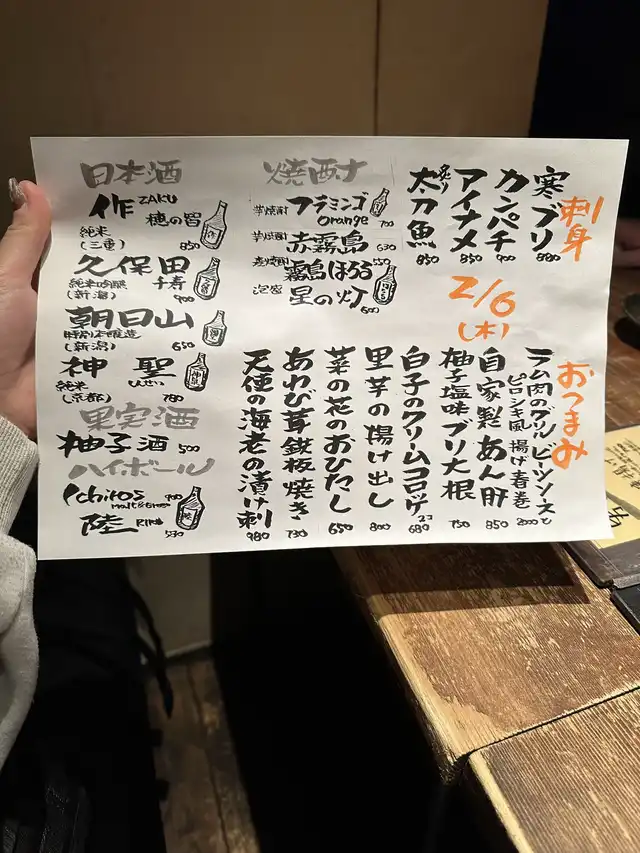 刺身
寒ブリ 880
カンパチ 900
アイナメ 850
炙り太刀魚 850
2/6
(木)
おつまみ
ラム肉のグリルビーツソースと
ピロシキ風 揚げ春巻 2000
自家製あん肝 850
柚子塩味ブリ大根 750
白子のクリームコロッケ 2コ 680
里芋の揚げ出し 800
菜の花のおひたし 650
あわび茸鉄板焼き 730
天使の海老の漬け刺 980
焼酎
芋焼酎 フラミンゴ
orange 700
芋焼酎 赤霧島 630
麦焼酎 霧島ほろる 550
泡盛 星の灯 600
日本酒
作 ZAKU
穂の智
純米
(三重) 850
久保田
純米吟醸 千寿
(新潟) 900
朝日山
特別本醸造
(新潟) 650
神聖
純米
(京都) 780
果実酒
柚子酒 500
ハイボール
Ichiros 900
Malt&Grain
陸 RIKU 530